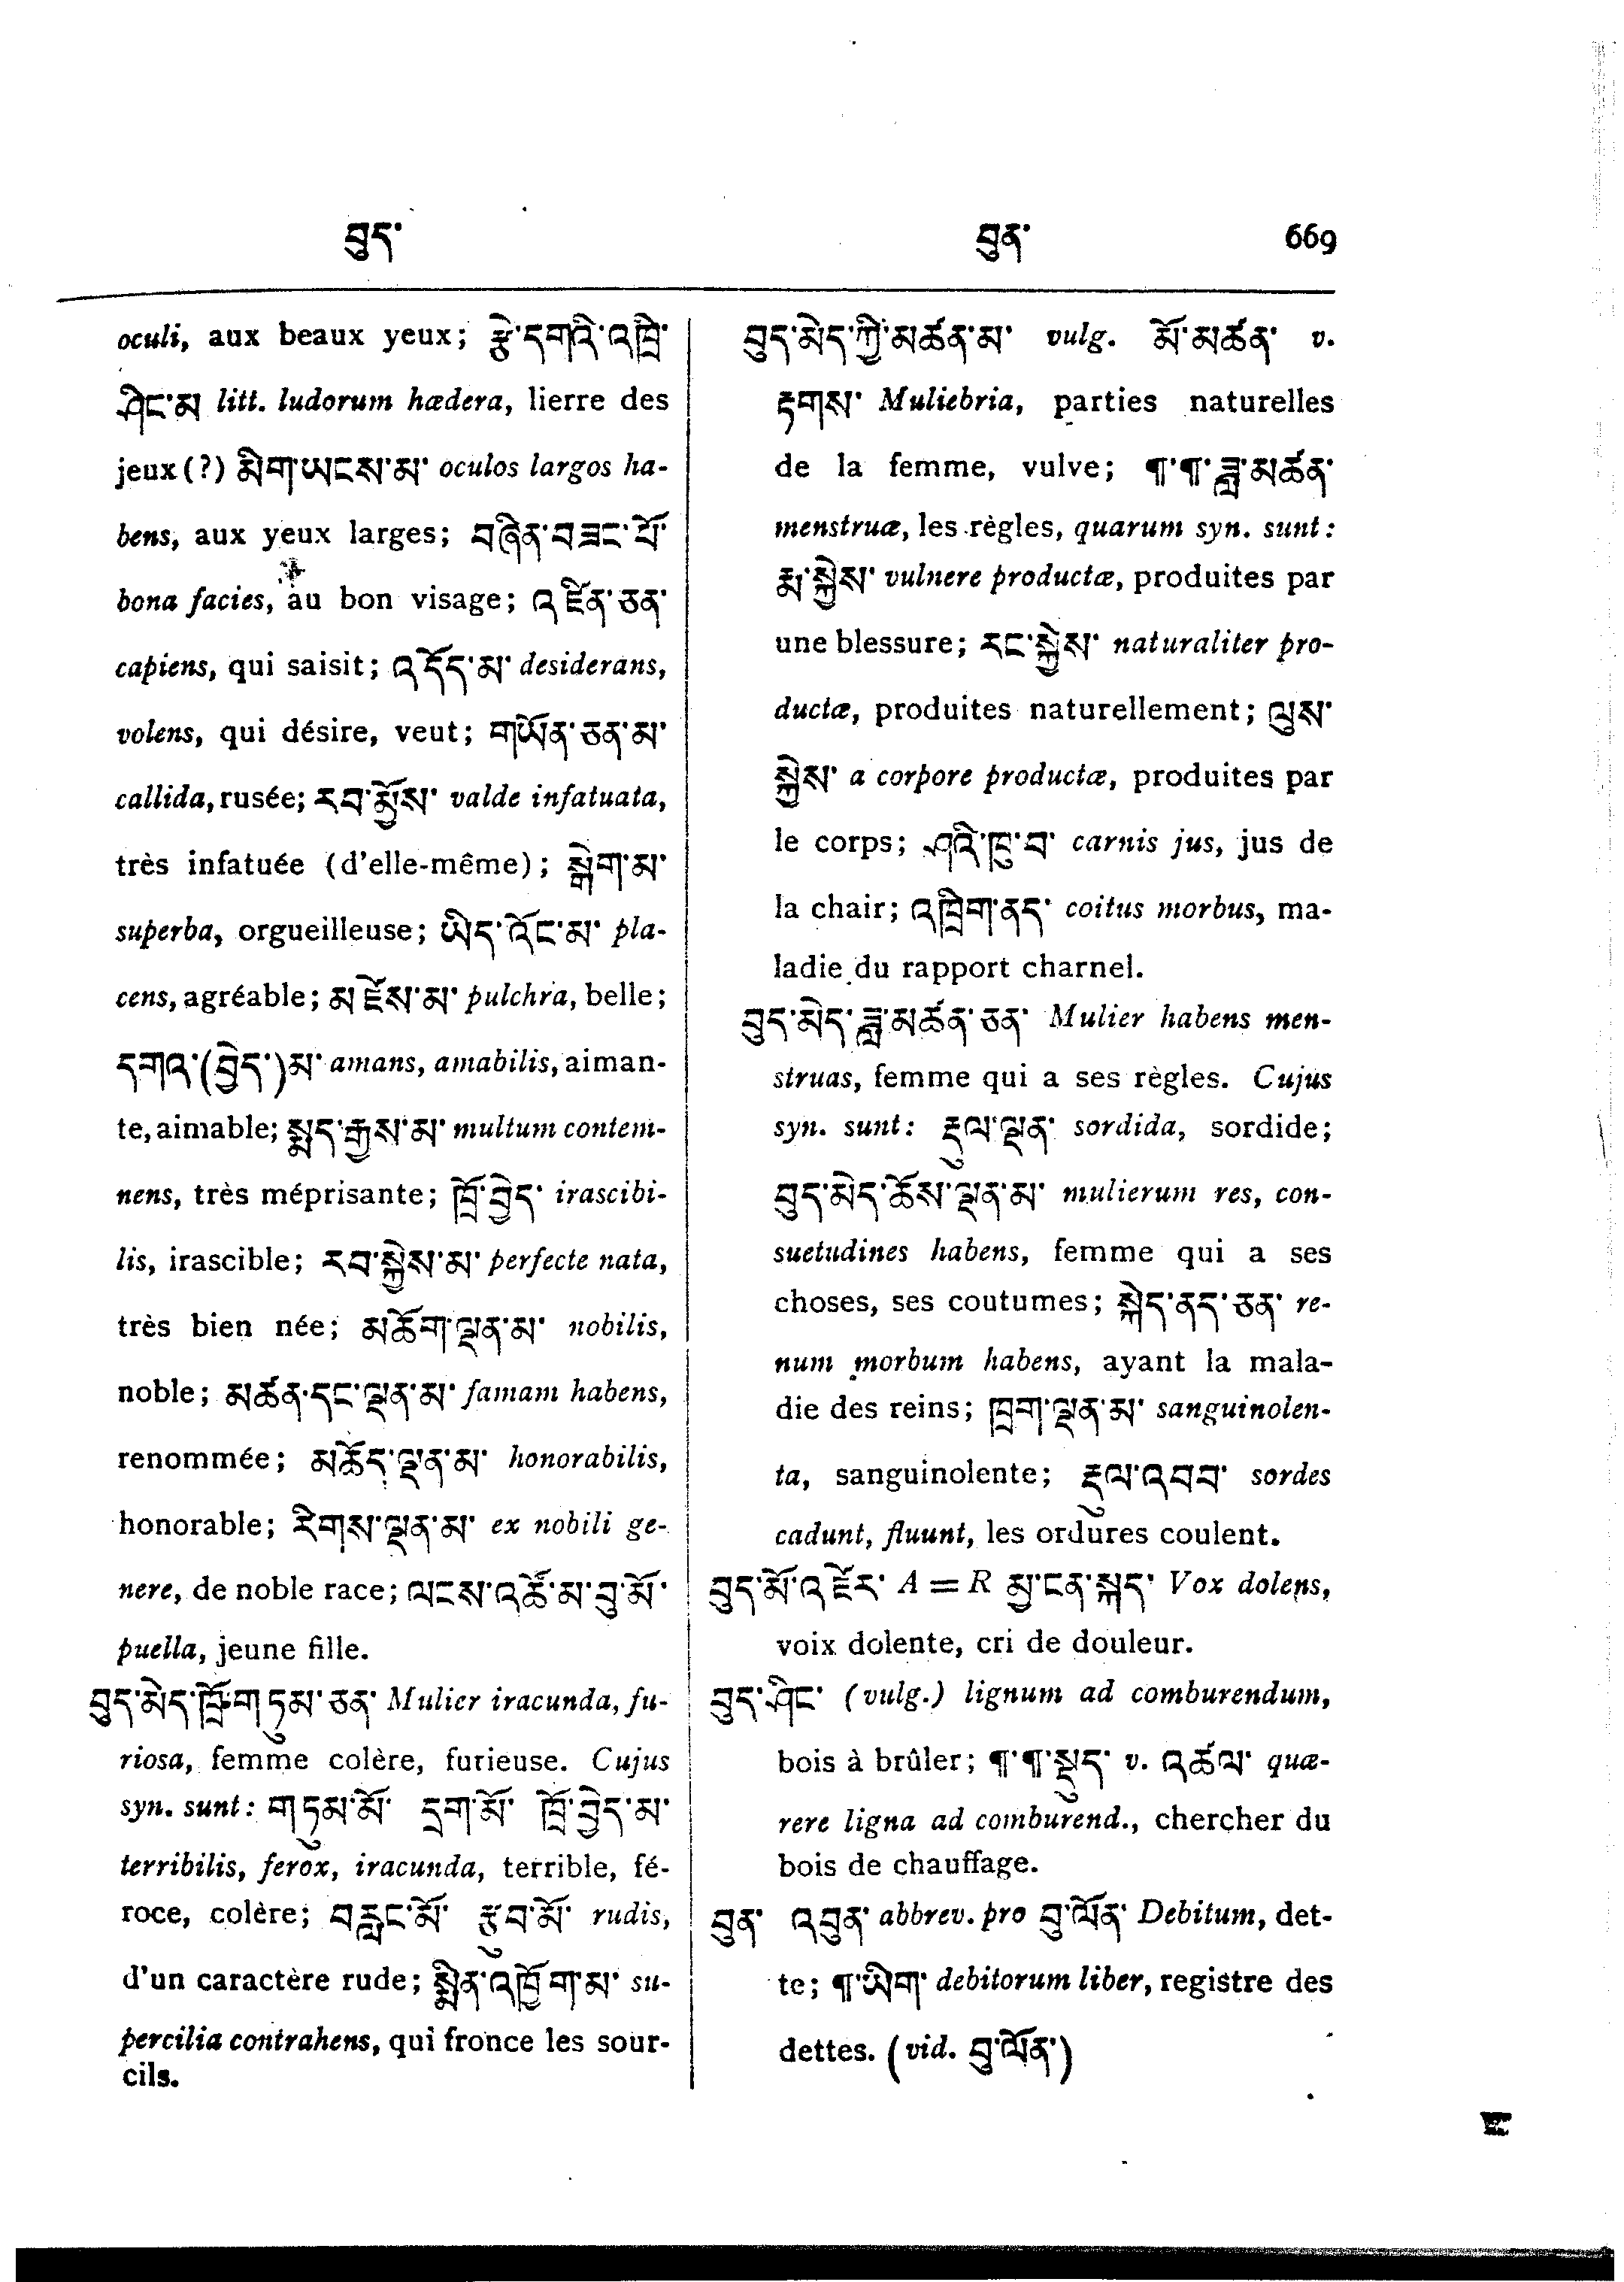 བུད་ བུན་ 669
oculi, aux beaux yeux; རྩེ་དགའི་འཁྲི་
ཤིང་མ litt. ludorum hædera, lierre des
jeux (?) མིག་ཡངས་མ་ oculos largos ha-
bens, aux yeux larges; བཞིན་བཟང་པོ་
bona facies, au bon visage; འཛིན་ཅན་
capiens, qui saisit; འདོད་མ་ desiderans,
volens, qui désire, veut; གཡོན་ཅན་མ་
callida, rusée; རབ་མྱོས་ valde infatuata,
très infatuée (d'elle-même); སྒྲེག་མ་
superba, orgueilleuse; ཡིད་འོང་མ་ pla-
cens, agréable; མཛེས་མ་ pulchra, belle;
དགའ་(བྱེད་)མ་ amans, amabilis, aiman-
te, aimable; སྨད་རྒྱས་མ་ multum contem-
nens, très méprisante; ཁྲོ་བྱེད་ irascibi-
lis, irascible; རབ་སྐྱེས་མ་ perfecte nata,
très bien née; མཆོག་ལྡན་མ་ nobilis,
noble; མཚན་དང་ལྡན་མ་ famam habens,
renommée; མཆོད་ལྡན་མ་ honorabilis,
honorable; རིགས་ལྡན་མ་ ex nobili ge-
nere, de noble race; ལངས་འཚོ་མ་བུ་མོ་
puella, jeune fille.
བུད་མེད་ཁྲོ་གཏུམ་ཅན་ Mulier iracunda, fu-
riosa, femme colère, furieuse. Cujus
syn. sunt: གཏུམ་མོ་ དྲག་མོ་ ཁྲོ་བྱེད་མ་
terribilis, ferox, iracunda, terrible, fé-
roce, colère; བརླང་མོ་ རྩུབ་མོ་ rudis,
d'un caractère rude; སྨིན་འཁྱོག་མ་ su-
percilia contrahens, qui fronce les sour-
cils.
བུད་མེད་ཀྱི་མཚན་མ་ vulg. མོ་མཚན་ v.
རྟགས་ Muliebria, parties naturelles
de la femme, vulve; ¶་¶་ཟླ་མཚན་
menstruæ, les règles, quarum syn. sunt:
རྨ་སྐྱེས་ vulnere productæ, produites par
une blessure; རང་སྐྱེས་ naturaliter pro-
ductæ, produites naturellement; ལུས་
སྐྱེས་ a corpore productæ, produites par
le corps; ཤའི་ཁུ་བ་ carnis jus, jus de
la chair; འཁྲིག་ནད་ coitus morbus, ma-
ladie du rapport charnel.
བུད་མེད་ཟླ་མཚན་ཅན་ Mulier habens men-
struas, femme qui a ses règles. Cujus
syn. sunt: རྡུལ་ལྡན་ sordida, sordide;
བུད་མེད་ཆོས་ལྡན་མ་ mulierum res, con-
suetudines habens, femme qui a ses
choses, ses coutumes; སྐེད་ནད་ཅན་ re-
num morbum habens, ayant la mala-
die des reins; ཁྲག་ལྡན་མ་ sanguinolen-
ta, sanguinolente; རྡུལ་འབབ་ sordes
cadunt, fluunt, les ordures coulent.
བུད་མོ་འཛེར་ A = R མྱ་ངན་སྐད་ Vox dolens,
voix dolente, cri de douleur.
བུད་ཤིང་ (vulg.) lignum ad comburendum,
bois à brûler; ¶་¶་སྡུད་ v. འཚལ་ quæ-
rere ligna ad comburend., chercher du
bois de chauffage.
བུན་ འབུན་ abbrev. pro བུ་ལོན་ Debitum, det-
te; ¶་ཡིག་ debitorum liber, registre des
dettes. (vid. བུ་ལོན་)